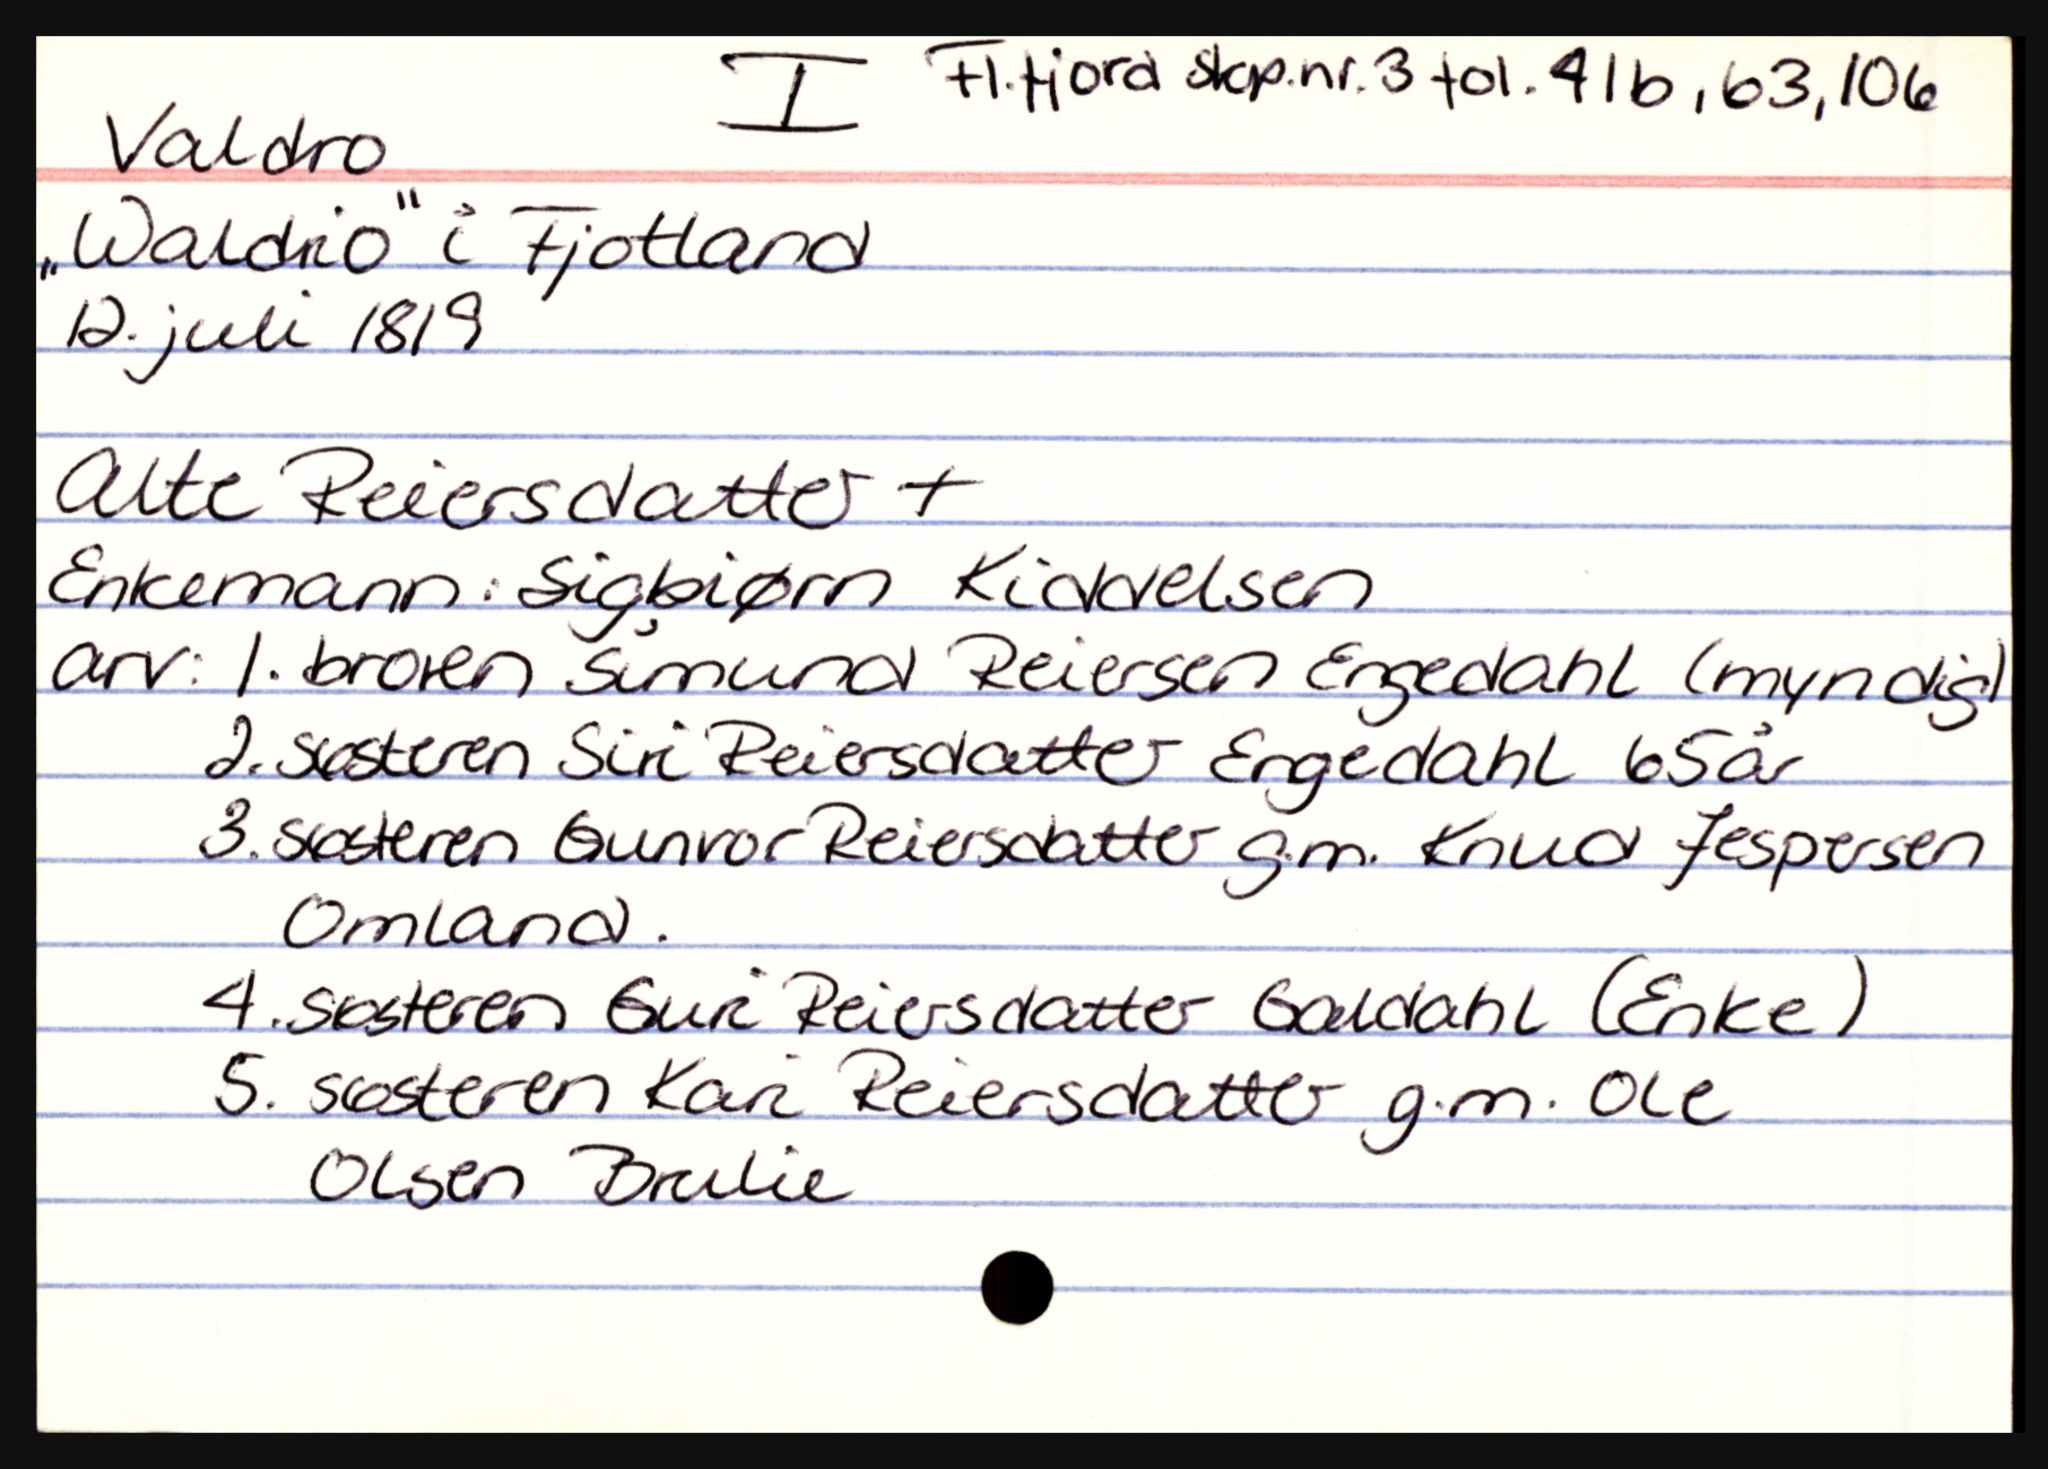 I Fl.fjord skp.nr.3 fol. 41b, 63, 106
Valdro
„Waldrio" i Fjotland
12. juli 1819
Alte Reiersdatter +
Enkemann: Sigbiørn Kiddelsen
arv: 1. broren Simund Reiersen Engedahl (myndig)
2. søsteren Siri Reiersdatter Engedahl 65 år
3. søsteren Gunvor Reiersdatter g.m. Knud Jespersen
Omland.
4. søsteren Guri Reiersdatter Galdahl (Enke)
5. søsteren Kari Reiersdatter g.m. Ole
Olsen Brulie